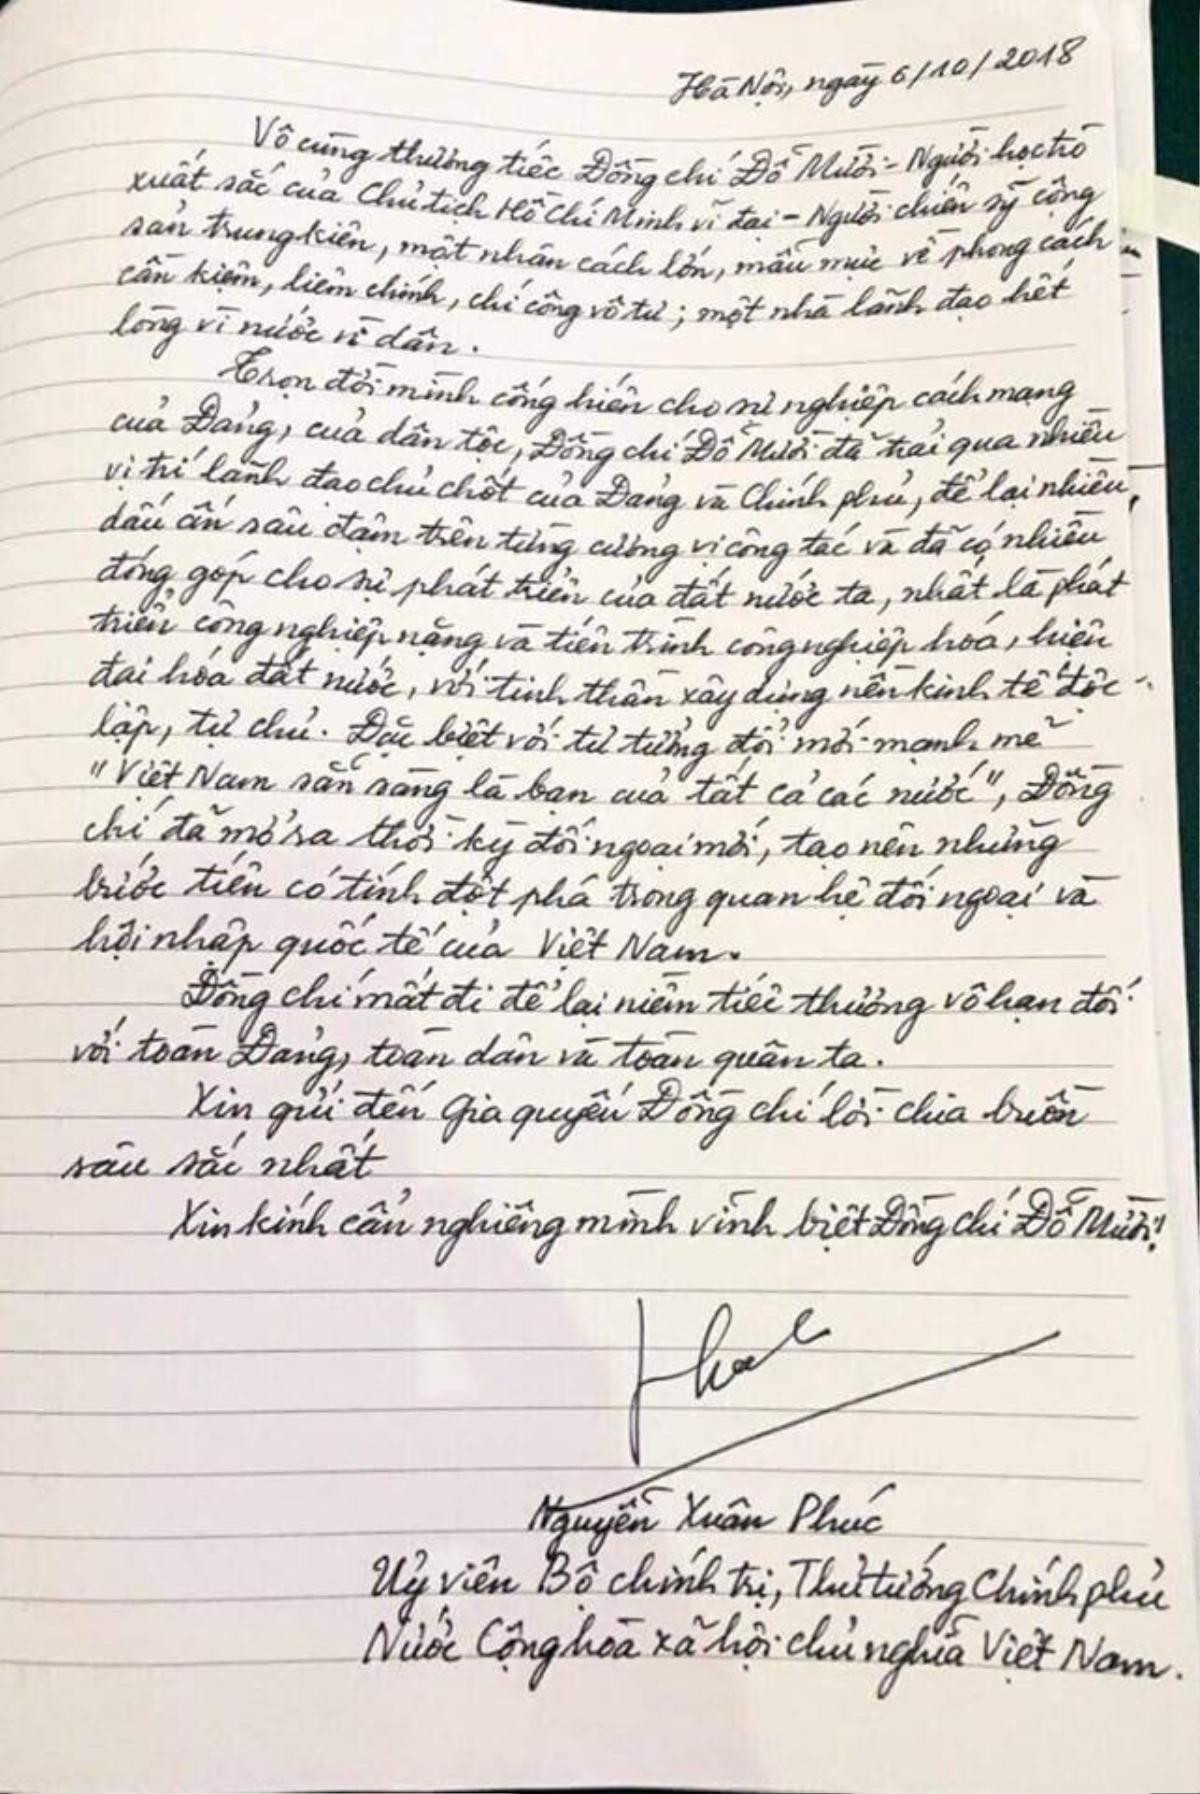 Hà Nội, ngày 6/10/2018
Vô cùng thương tiếc Đồng chí Đỗ Mười - Người học trò
xuất sắc của Chủ tịch Hồ Chí Minh vĩ đại - Người chiến sỹ cộng
sản trung kiên, một nhân cách lớn, mẫu mực về phong cách
cần kiệm, liêm chính, chí công vô tư; một nhà lãnh đạo hết
lòng vì nước vì dân.
Trọn đời mình cống hiến cho sự nghiệp cách mạng
của Đảng, của dân tộc, Đồng chí Đỗ Mười đã trải qua nhiều
vị trí lãnh đạo chủ chốt của Đảng và Chính phủ, để lại nhiều
dấu ấn sâu đậm trên từng cương vị công tác và đã có nhiều
đóng góp cho sự phát triển của đất nước ta, nhất là phát
triển công nghiệp nặng và tiến trình công nghiệp hóa, hiện
đại hóa đất nước, với tinh thần xây dựng nền kinh tế độc
lập, tự chủ. Đặc biệt với tư tưởng đổi mới mạnh mẽ
"Việt Nam sẵn sàng là bạn của tất cả các nước", Đồng
chí đã mở ra thời kỳ đối ngoại mới, tạo nên những
bước tiến có tính đột phá trong quan hệ đối ngoại và
hội nhập quốc tế của Việt Nam.
Đồng chí mất đi để lại niềm tiếc thương vô hạn đối
với toàn Đảng, toàn dân và toàn quân ta.
Xin gửi đến gia quyến Đồng chí lời chia buồn
sâu sắc nhất
Xin kính cẩn nghiêng mình vĩnh biệt Đồng chí Đỗ Mười!
Phúc
Nguyễn Xuân Phúc
Uỷ viên Bộ chính trị, Thủ tướng Chính phủ
Nước Cộng hoà xã hội chủ nghĩa Việt Nam.